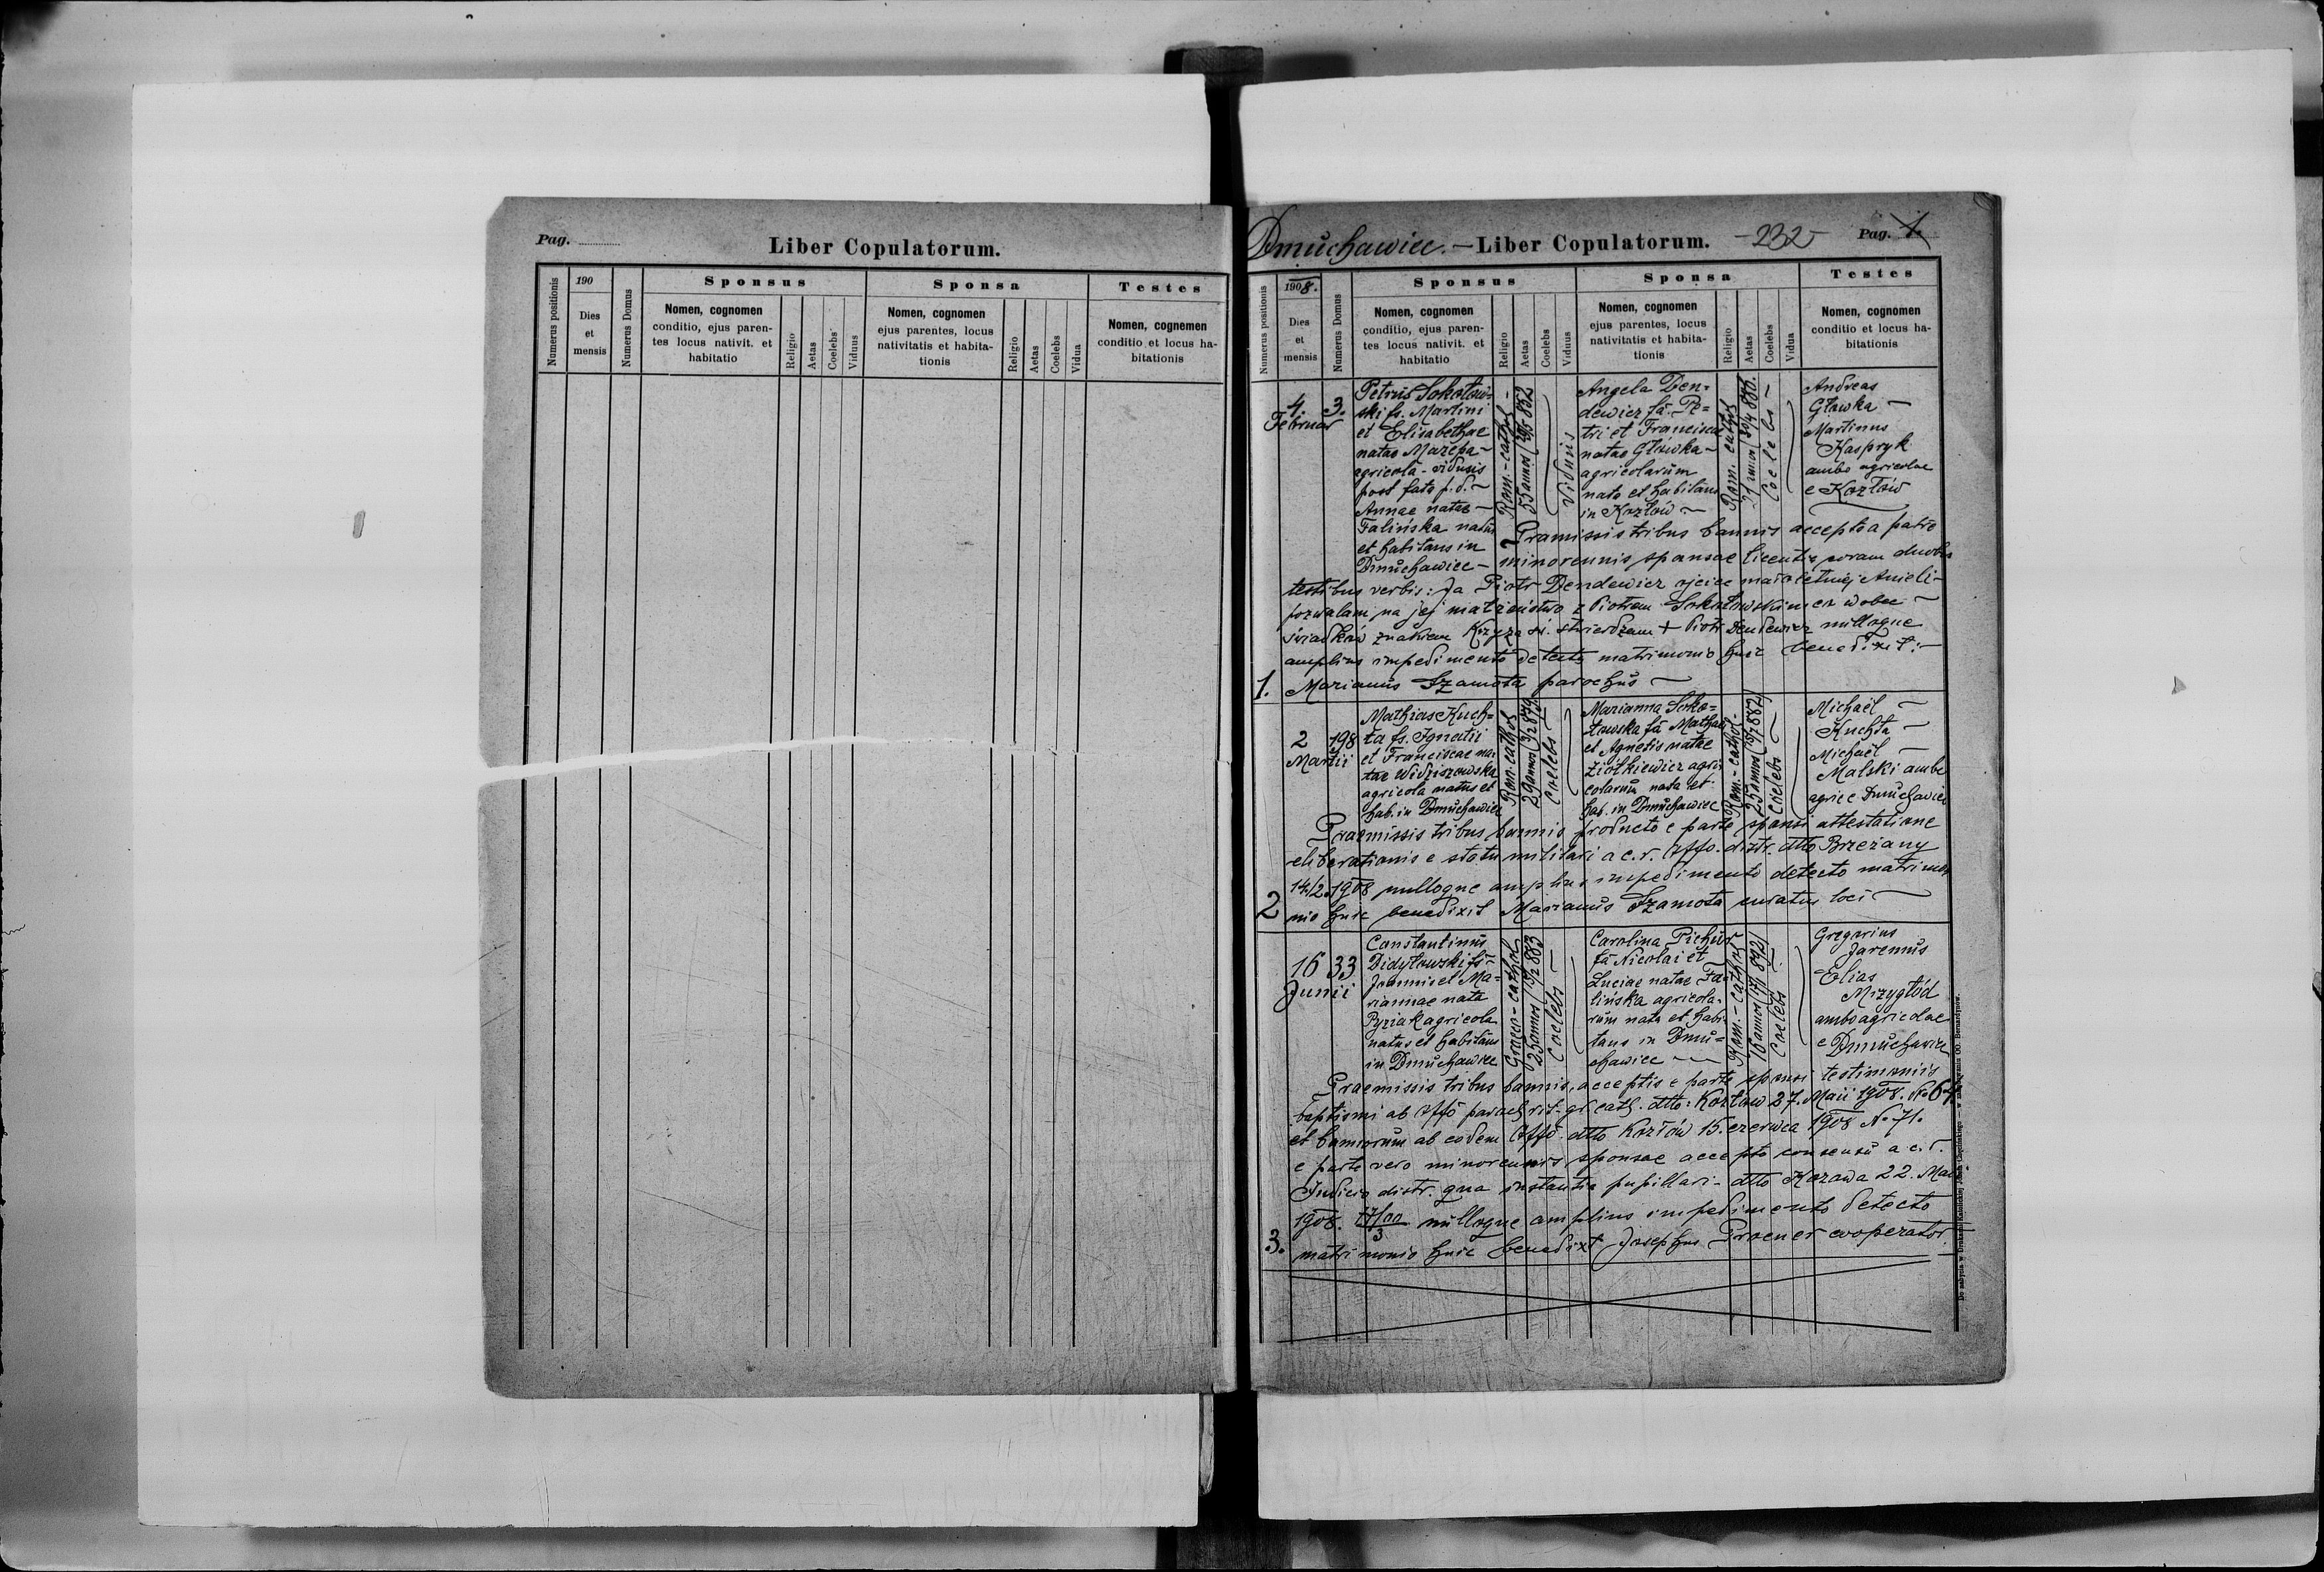 Pag.
Liber Copulatorum.
Numerus positionis
190
Dies
et
mensis
Numerus Domus
Sponsus
Nomen, cognomen
conditio, ejus paren-
tes locus nativit. et
habitatio
Religio
Aetas
Coelebs
Viduus
Sponsa
Nomen, cognomen
ejus parentes, locus
nativitatis et habita-
tionis
Religio
Aetas
Coelebs
Vidua
Testes
Nomen, cognemen
conditio et locus ha-
bitationis
Dmuchawiec. - Liber Copulatorum. -232- Pag. 1.
Numerus positionis
1908.
Dies
et
mensis
Numerus Domus
Sponsus
Nomen, cognomen
conditio, ejus paren-
tes locus nativit. et
habitatio
Religio
Aetas
Coelebs
Viduus
Sponsa
Nomen, cognomen
ejus parentes, locus
nativitatis et habita-
tionis
Religio
Aetas
Coelebs
Vidua
Testes
Nomen, cognomen
conditio et locus ha-
bitationis
1.
4.
Februar
3.
Petrus Sokołow-
ski fs. Martini
et Elisabethae
natae Mazepa -
agricola - viduus
post fata p. d. -
Annae natae -
Falińska natus
et habitans in
Dmuchawiec -
Rom.-cathol -
55 annos
Viduus
Angela Den=
dewicz fa. Pe=
tri et Francisca
natae Główka -
agricolarum
nata et habitans
in Kozłów -
Rom. cathol
Coelebs -
Andreas
Główka -
Martinus
Kaspryk
ambo agricolae
e Kozłów
Pramissis tribus bannis accepta a patre
minorennis sponsae licentia coram duobus
testibus verbis: Ja Piotr Dendewicz ojciec małoletniej Anieli -
pozwalam na jej małżeństwo z Piotrem Sokołowskim co wobec -
świadków znakiem Krzyża św. stwierdzam + Piotr Dendewicz nulloque
amplius impedimento detecto matrimonio huic benedixit: -
Marianus Szamota parochus -
2
2
Martii
198
Mathias Kuch=
ta fs. Ignatii
et Franciscae na-
tae Widziszowska
agricola natus et
hab. in Dmuchawiec
Rom. cathol
29 annos
Coelebs -
Marianna Soko=
łowska fa Mathaei
et Agnetis natae
Ziółkiewicz agri-
colarum nata et
hab. in Dmuchawiec
Rom.-cathol.
25 annos
Coelebs -
Michael -
Kuchta -
Michael -
Malski ambo
agric e Dmuchawiec
Praemissis tribus bannis producto e parte sponsi attestatione
eliberationis e statu militari a c. r. Offo. distr. dtto Brzeżany
14/2 1908 nulloque amplius impedimento detecto matrimo-
nio huic benedixit Marianus Szamota curatus loci -
3.
16
Junii
33
Constantinus
Didyłowski fs -
Joannis et Ma-
riannae nata
Pyziak agricola
natus et habitans
in Dmuchawiec
Graeco-cathol
25 annos
Coelebs -
Carolina Pichur
fa Nicolai et
Luciae natae Fa-
lińska agricola-
rum nata et habi-
tans in Dmu=
chawiec -
Rom.-cathol
16 annos
Coelebs
Gregorius
Jaremus
Elias
Mrzygłód
ambo agricolae
e Dmuchawiec
Praemissis tribus bannis, acceptis e parte sponsi testimoniis
baptismi ab Offo paroch rit. gr. cath. dtto: Kozłów 27. Maii 1908. No 64
et bannorum ab eodem Offo. dtto Kozłów 15. czerwca 1908 No. 71.
e parte vero minorennis sponsae accepto consensu a c. r.
Judicio distr. qua instantia pupillari - dtto Kozowa 22. Maii
1908. nulloque amplius impedimento detecto
matrimonio huic benedixt Josephus Proener cooperator.